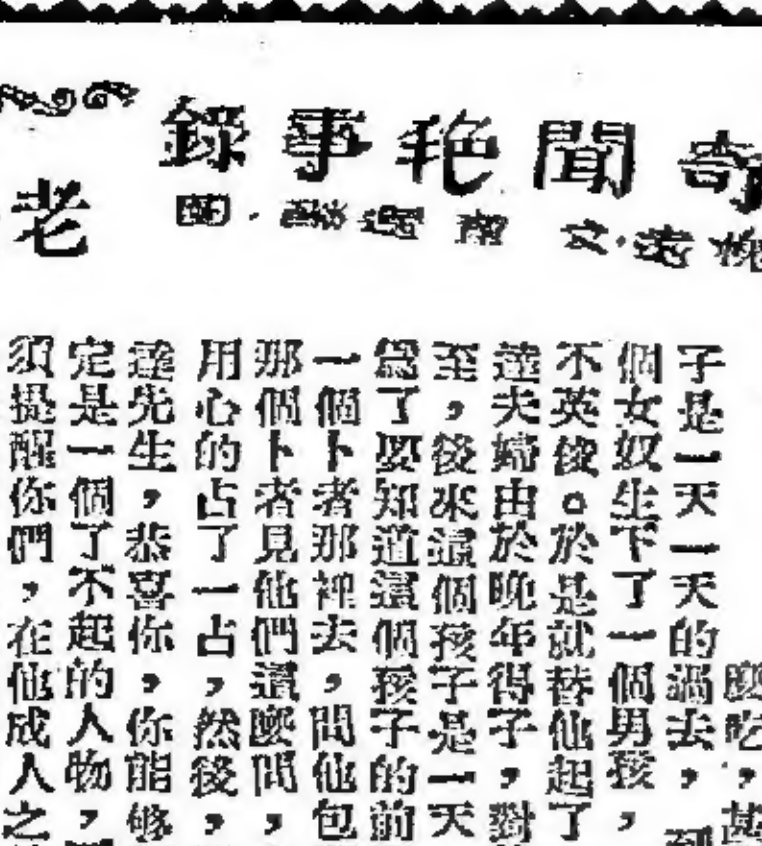 奇聞艷事錄
文・圖
老
麼吃，甚
子是一天一天的過去，到
個女奴生下了一個男孩，
不英俊。於是就替他起了
達夫婦由於晚年得子，對
至，後來這個孩子是一天
為了要知道這個孩子的前
一個卜者那裡去，問他包
那個卜者見他們這麼問，
用心的占了一占，然後，
達先生，恭喜你，你能够
定是一個了不起的人物，
須提醒你們，在他成人之